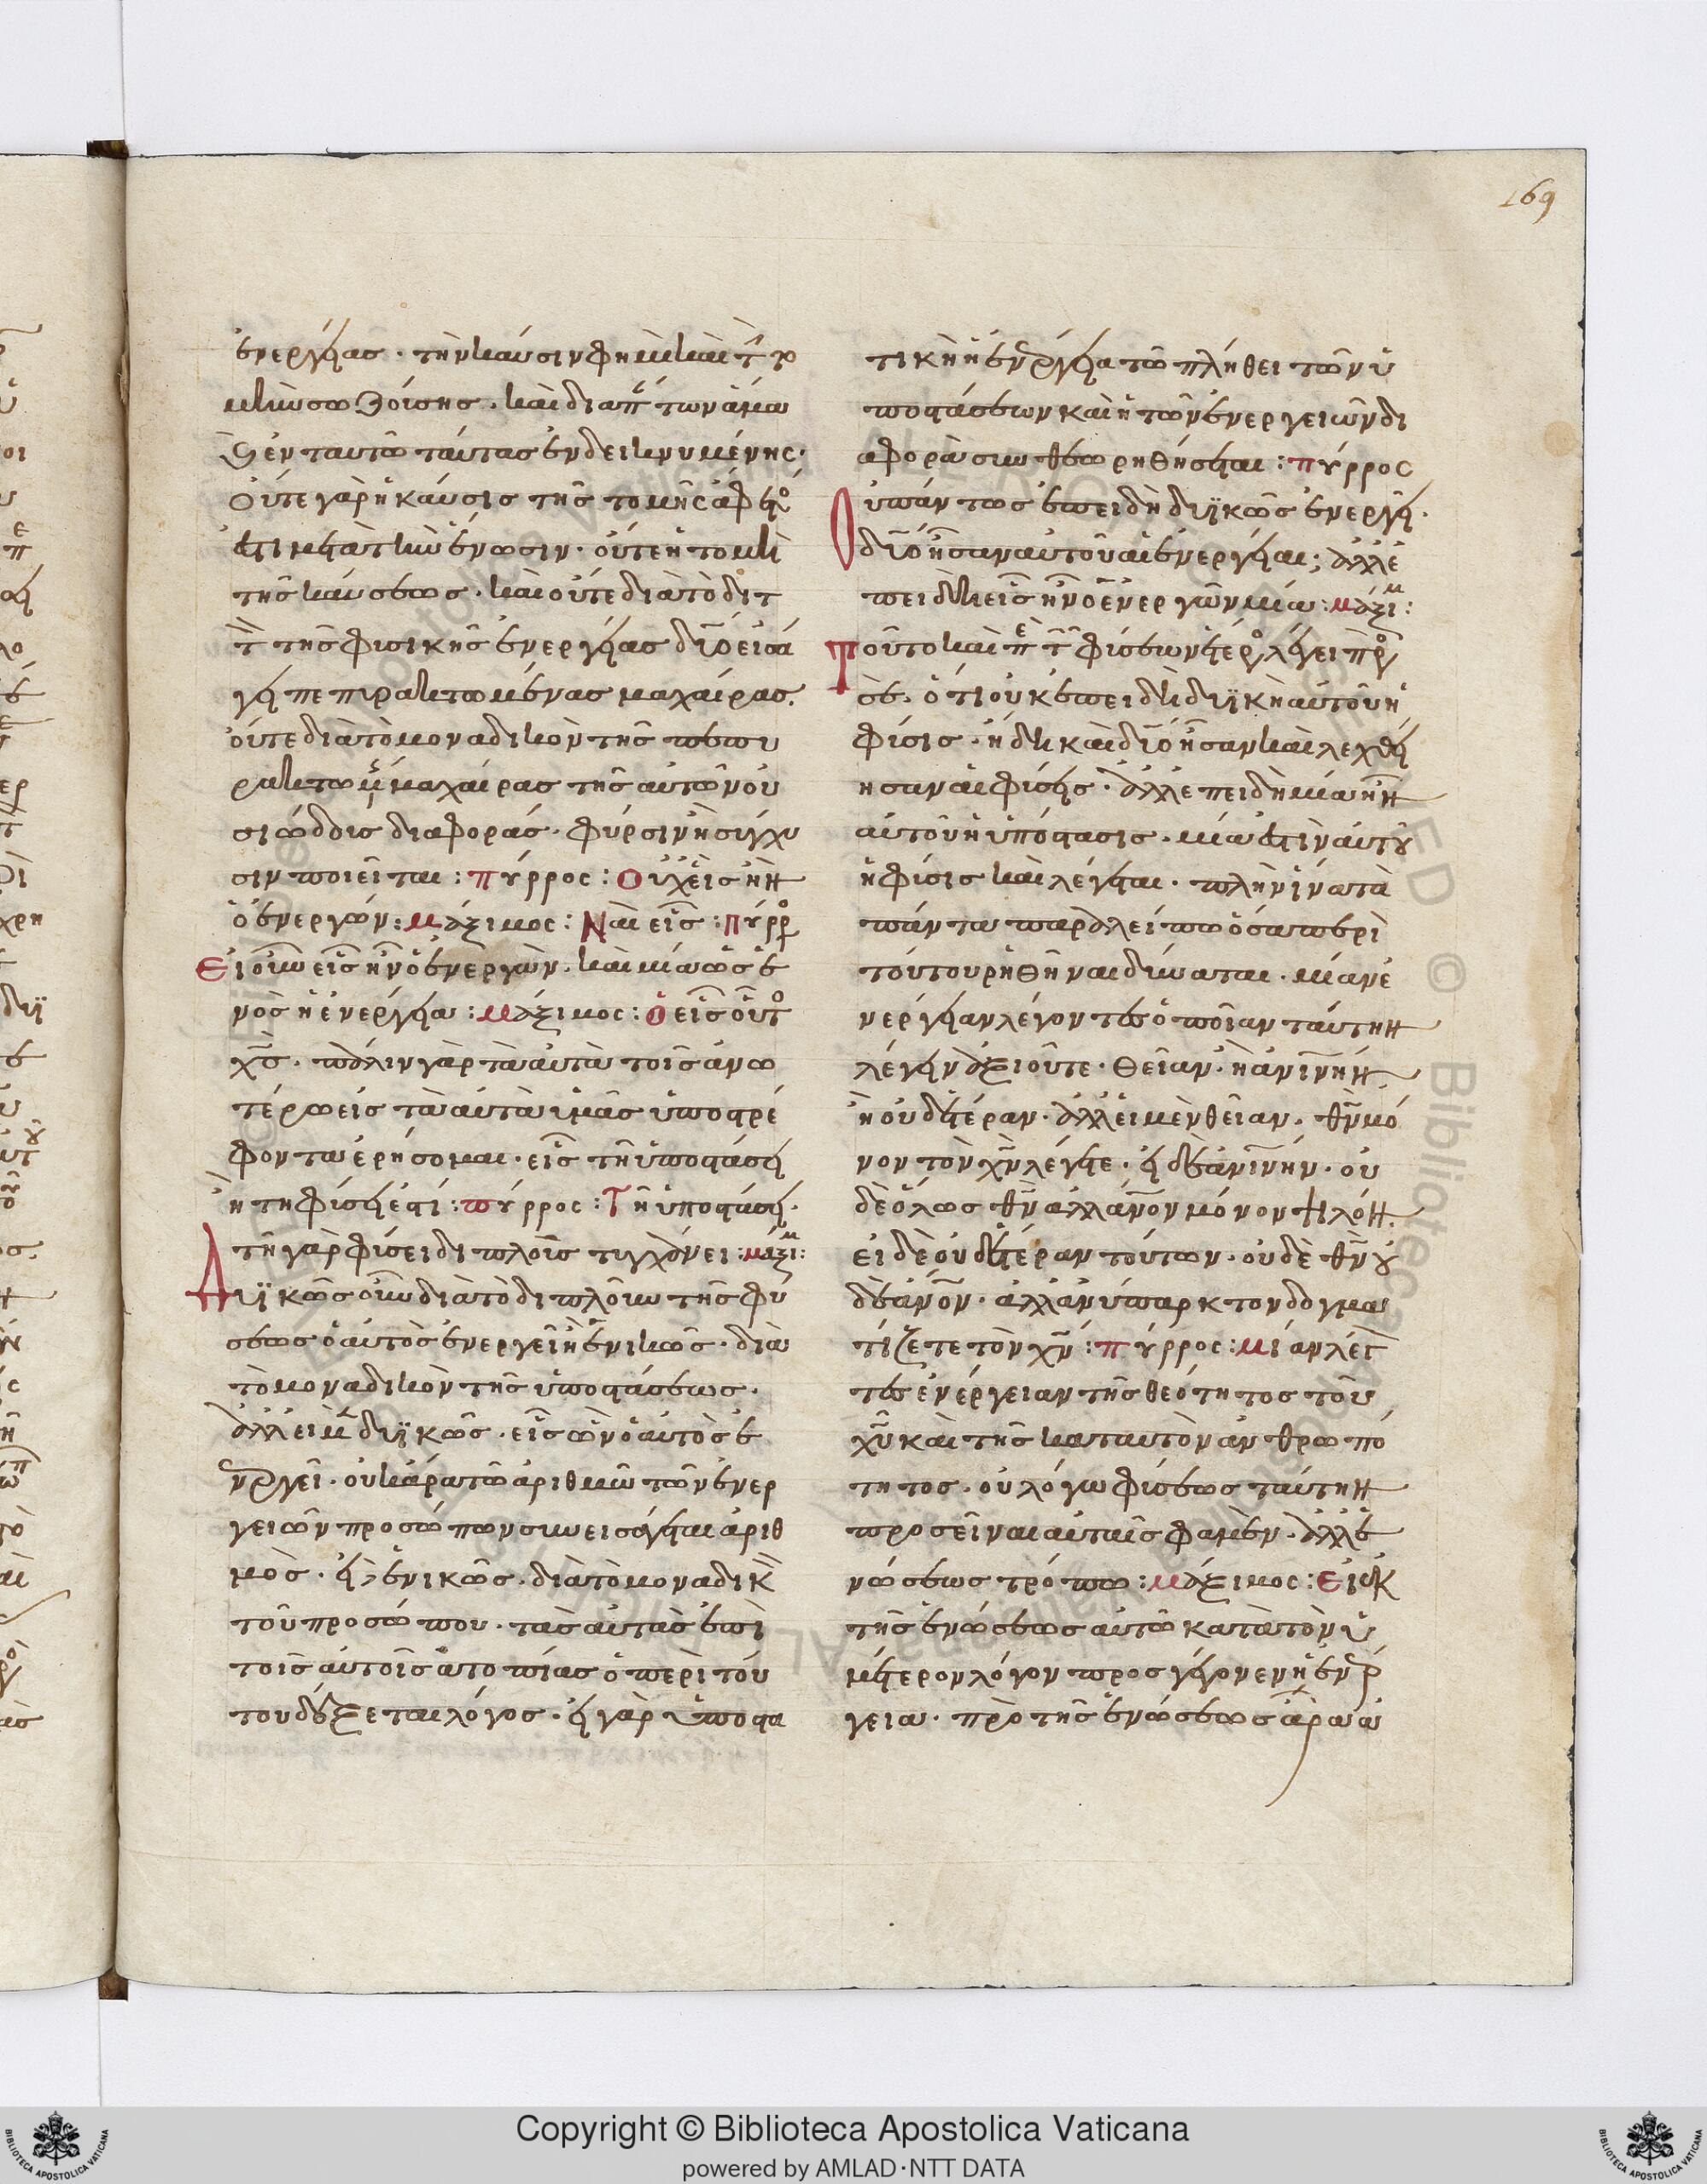 169
ἐνεργείας· τὴν καῦσιν φημὶ καὶ τ̂ το
μὴν σωζούσης. καὶ διαπ̂των ἅμα
ἐν ταυτῶ ταύτας ἐνδεικνυμένης·
Οὔτε γὰρ ἡ καῦσις τῆς τομῆς ἀφ
ἐστι μετὰ τὴν ἕνωσιν· οὔτε ἡ τομὴ
τῆς καύσεως. καὶ οὔτε διὰ τὸ διτ
τ̀ τῆς φυσικῆς ἐνεργείας δύο εἰσά
γει πεπυρακτωμένας μαχαίρας.
οὔτε διὰ τὸ μοναδικὸν τῆς πεπυ
ρακτωμ̂ μαχαίρας τῆς αὐτῶν οὐ
σιώδους διαφορᾶς· φύρσιν ἢ σύγχυ
σιν ποιεῖται: πύρρος: Οὐχ εἷς ἦν
ὁ ἐνεργῶν: μάξιμος: Ναὶ εἷς: πύρρ
Ει οὖν εἷς ἦν ὁ ἐνεργῶν. καὶ μία ὡς ἑ
νὸς ἡ ἐνέργεια: μάξιμος: ὁ εἷς οὗτ
χ̅ς̅. πάλιν γὰρ τὰ αὐτὰ τοῖς ἀνω
τέρω εἰς τὰ αὐτὰ ὑμᾶς ὑποστρέ
φοντα ἐρήσομαι· εἷς τῆ ὑποστάσει
ἢ τη φύσει ἐστί: πύρρος: Τῆ ὑποστάσει·
τῆ γὰρ φύσει διπλοῦς τυγχάνει: μάξιμ:
Δυϊκῶς οὖν διὰ τὸ διπλοῦν τῆς φύ
σεως ὁ αὐτὸς ἐνεργεῖ ἢ ἑνικῶς· διὰ
τὸ μοναδικὸν τῆς ὑποστάσεως·
ἀλλ εἰ μ̂ δυϊκῶς· εἷς ὢν ὁ αὐτὸς ἐ
νεργεῖ· οὐκ ἄρα τῶ ἀριθμῶ τῶν ἐνερ
γειῶν προσώπων συνεισάγεται ἀριθ
μὸς· εἰ δ ἑνικῶς. διὰ τὸ μοναδικ
τοῦ προσώπου· τὰς αὐτὰς ἐπὶ
τοῖς αὐτοῖς ἀτοπίας ὁ περὶ τού
του δέξεται λόγος· εἰ γὰρ ὑποστα
τικὴ ἡ ἐνέργεια τῶ πλήθει τῶν ὑ
ποστάσεων καὶ ἡ τῶν ἐνεργειῶν δι
αφορὰ συνθεωρηθήσεται: πύρρος
Οὐ πάντως ἐπειδὴ δυϊκῶς ἐνεργεῖ·
δύο ἦσαν αὐτοῦ αἱ ἐνέργειαι; ἀλλ ἐ
πειδὴ εἷς ἦν ὁ ἐνεργῶν μία: μάξιμ:
Τοῦτο καὶ π τ̂ φύσεων ἕτερ λέγει πρ
σὲ. ὅτι οὐκ ἐπειδὴ δυϊκὴ αὐτοῦ ἡ
φύσις· ἤδη καὶ δύο ἦσαν καὶ λεχθεί
ησαν αἱ φύσεις· ἀλλ ἐπειδὴ μία ἦν
αὐτοῦ ἡ ὑπόστασις. μία ἐστὶν αὐτοῦ
ἡ φύσις καὶ λέγεται· πλὴν ἵνα τὰ
πάντα παραλείπω ὅσα περὶ
τούτου ῥηθῆναι δύναται. μίαν ἐ
νέργειαν λέγοντες ὁποίαν ταύτην
λέγειν ἀξιοῦτε· θείαν. ἢ ἀνίνην.
ἢ οὐδετέραν· ἀλλ εἰ μὲν θείαν. θ̅ν̅ μό
νον τὸν χ̅ν̅ λέγετε. εἰ δὲ ἀνίνην. οὐ
δὲ ὅλως θ̅ν̅ ἀλλ ἀνον μόνον ψιλόν.
εἰ δὲ οὐδετέραν τούτων. οὐδὲ θ̅ν̅ οὐ
δὲ ἀνον. ἀλλ ἀνύπαρκτον δογμα
τίζετε τὸν χ̅ν̅: πύρρος: μίαν λέγ
τες ἐνέργειαν τῆς θεότητος τοῦ
χ̅υ̅ καὶ τῆς κατ αυτὸν ἀνθρωπό
τητος. οὐ λόγω φύσεως ταύτην
προσεῖναι αὐταῖς φαμὲν. ἀλλ ἑ
νώσεως τρόπω: μάξιμος: Ει ἐκ
τῆς ἑνώσεως αὐτῶ κατὰ τὸν ὑ
μέτερον λόγον προσγέγονεν ἡ ἐνέρ
γεια. πρὸ τῆς ἑνώσεως ἄρα ἀ
Copyright © Biblioteca Apostolica Vaticana
powered by AMLAD·NTT DATA